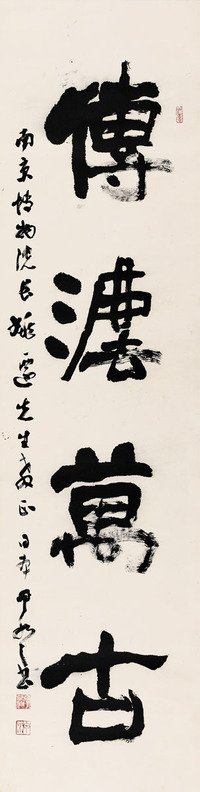 傳灋萬古
南京博物院長姚遷先生教正日本書